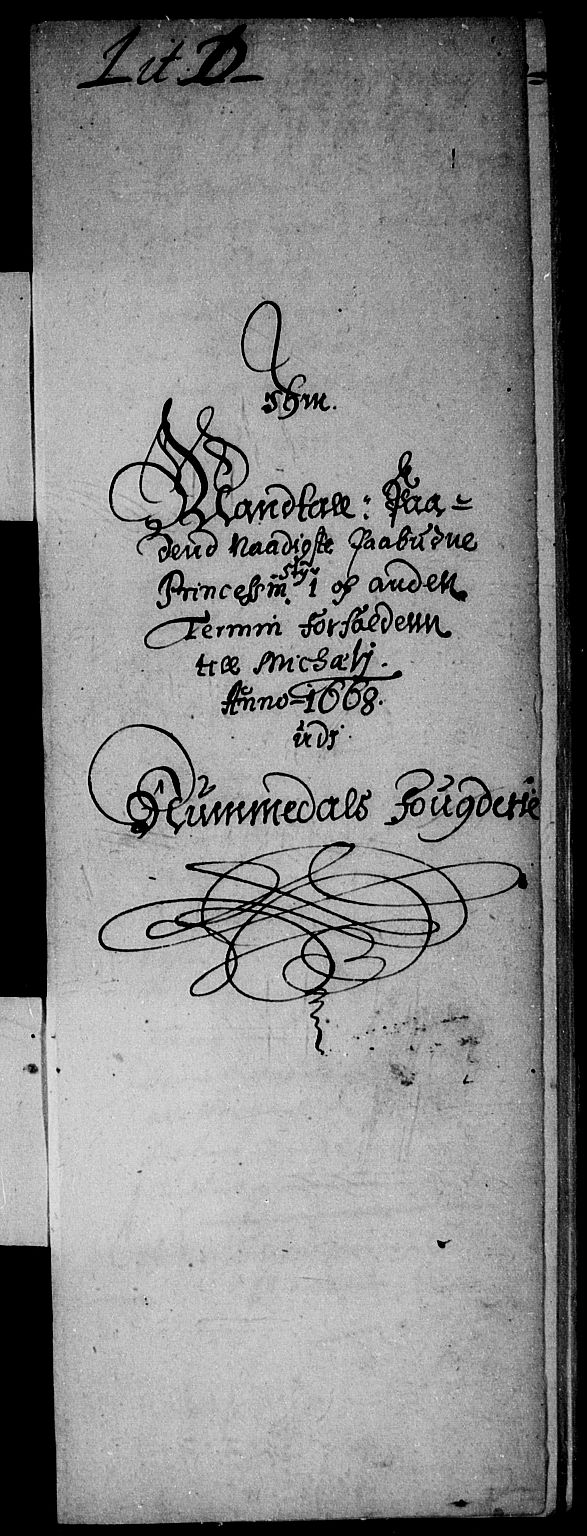 Lit: D
Jhm.
Mandtall: Paa=
dend Naadigste Paabudne
Princess:
styr
i og anden
Termin forfaldenn
till Michælj.
Anno=1668.
udj
Nummedals fougderie